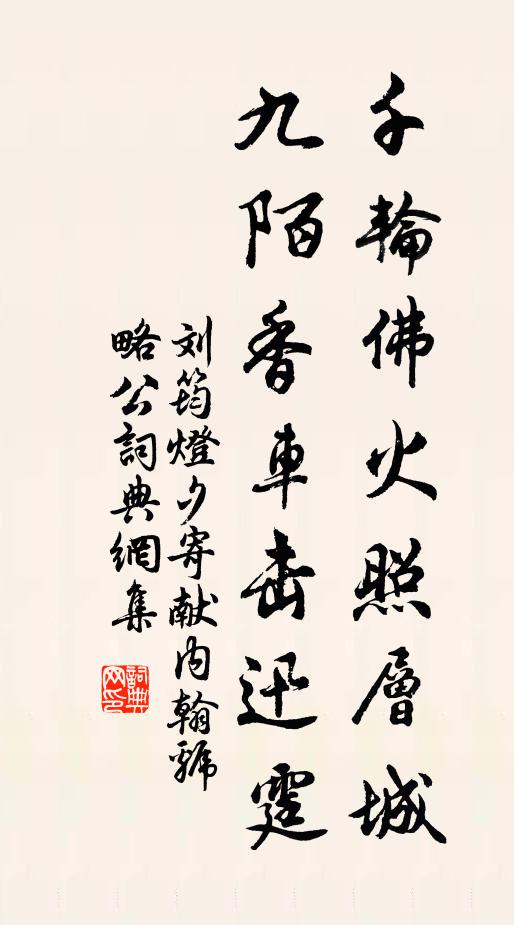 千輪佛火照層城
九陌香車击迅霆
刘筠燈夕寄献内翰虢
略公詞典網集
詞典网印